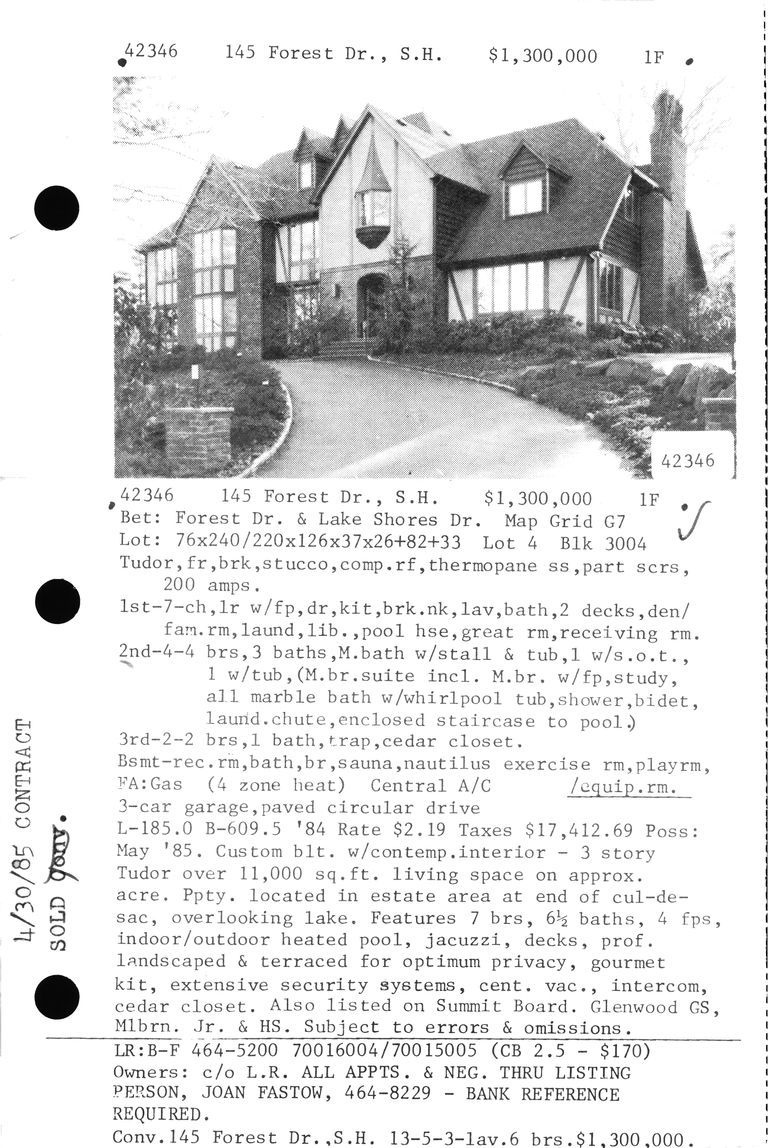 42346 145 Forest Dr., S.H. $1,300,000 1F
42346
42346 145 Forest Dr., S.H. $1,300,000 1F
Bet: Forest Dr. & Lake Shores Dr. Map Grid G7
Lot: 76x240/220x126x37x26+82+33 Lot 4 Blk 3004
Tudor,fr,brk,stucco,comp.rf,thermopane ss,part scrs,
200 amps.
1st-7-ch,lr w/fp,dr,kit,brk.nk,lav,bath,2 decks,den/
fam.rm,laund,lib.,pool hse,great rm,receiving rm.
2nd-4-4 brs,3 baths,M.bath w/stall & tub,1 w/s.o.t.,
1 w/tub,(M.br.suite incl. M.br. w/fp,study,
all marble bath w/whirlpool tub,shower,bidet,
laund.chute,enclosed staircase to pool.)
3rd-2-2 brs,1 bath,trap,cedar closet.
Bsmt-rec.rm,bath,br,sauna,nautilus exercise rm,playrm,
FA:Gas (4 zone heat) Central A/C /equip.rm.
3-car garage,paved circular drive
L-185.0 B-609.5 '84 Rate $2.19 Taxes $17,412.69 Poss:
May '85. Custom blt. w/contemp.interior - 3 story
Tudor over 11,000 sq.ft. living space on approx.
acre. Ppty. located in estate area at end of cul-de-
sac, overlooking lake. Features 7 brs, 6½ baths, 4 fps,
indoor/outdoor heated pool, jacuzzi, decks, prof.
landscaped & terraced for optimum privacy, gourmet
kit, extensive security systems, cent. vac., intercom,
cedar closet. Also listed on Summit Board. Glenwood GS,
Mlbrn. Jr. & HS. Subject to errors & omissions.
LR:B-F 464-5200 70016004/70015005 (CB 2.5 - $170)
Owners: c/o L.R. ALL APPTS. & NEG. THRU LISTING
PERSON, JOAN FASTOW, 464-8229 - BANK REFERENCE
REQUIRED.
Conv.145 Forest Dr.,S.H. 13-5-3-lav.6 brs.$1,300,000.
4/30/85 CONTRACT
SOLD Conv.